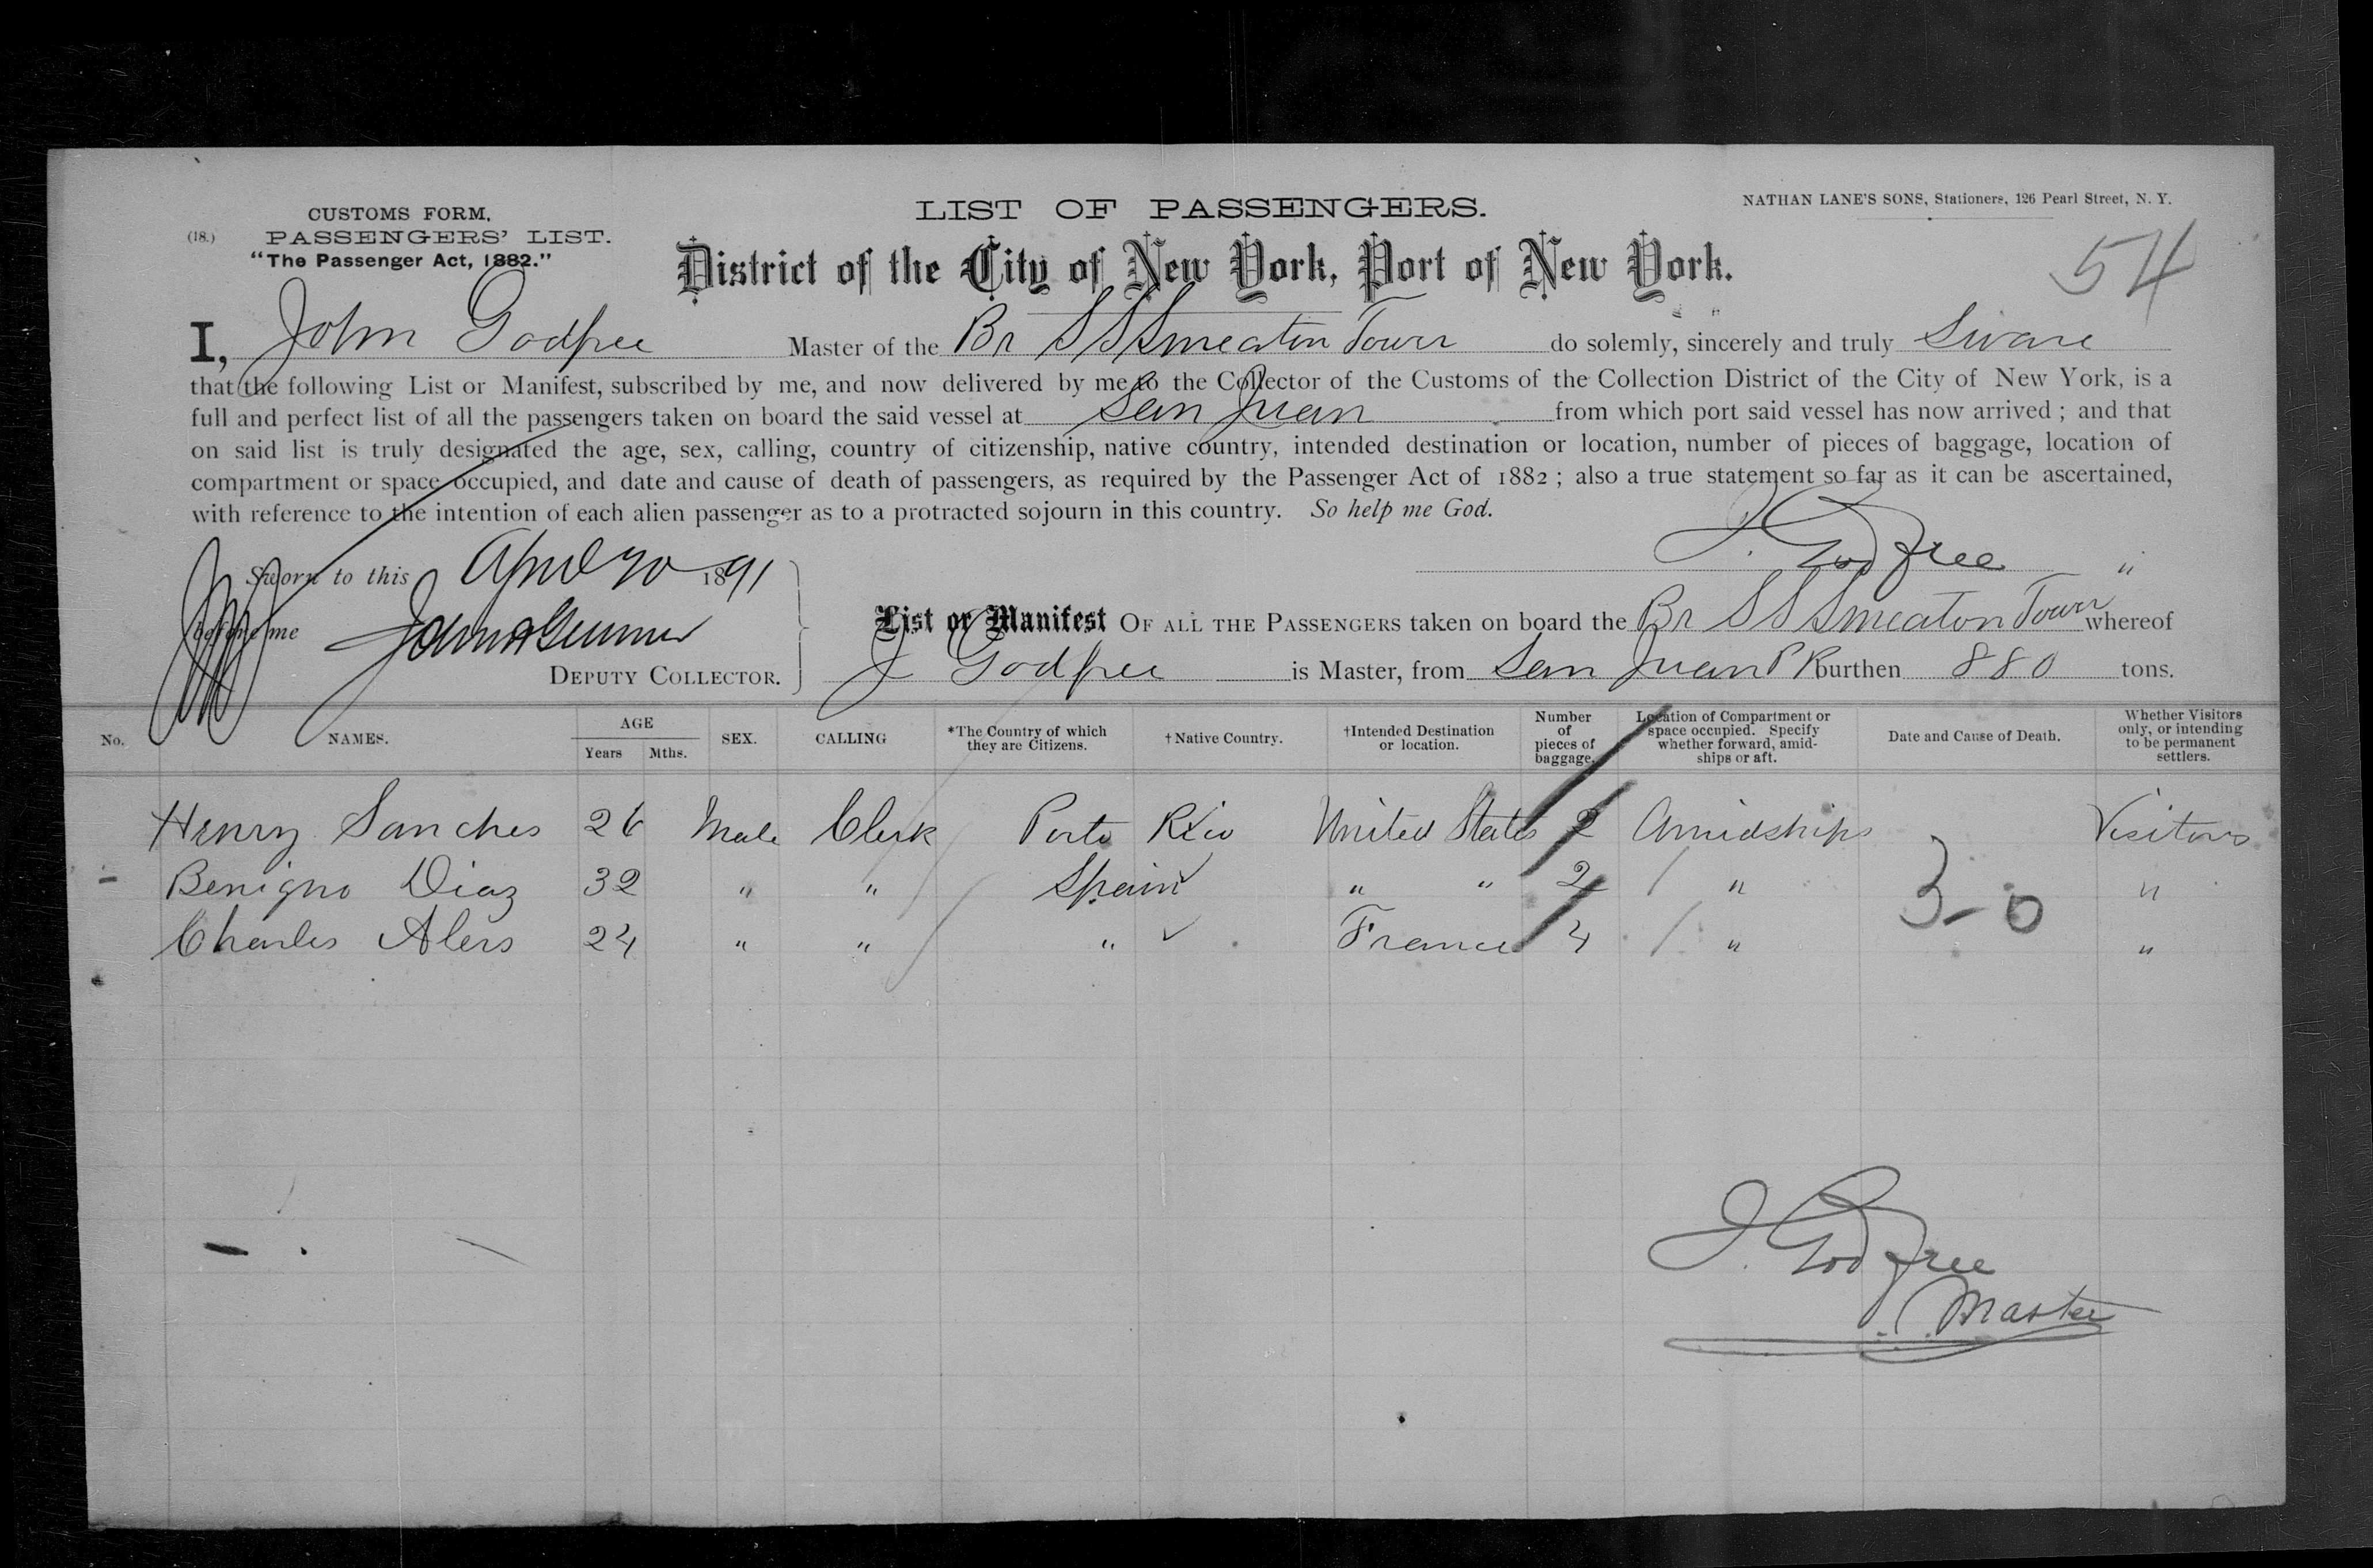 CUSTOMS FORM,
(18.) PASSENGERS' LIST.
"The Passenger Act, 1882."
LIST OF PASSENGERS.
NATHAN LANE'S SONS, Stationers, 126 Pearl Street, N. Y.
District of the City of New York, Port of New York.
54
I, John Godfree Master of the Br SS Smeaton Tower do solemnly, sincerely and truly Sware
that the following List or Manifest, subscribed by me, and now delivered by me to the Collector of the Customs of the Collection District of the City of New York, is a
full and perfect list of all the passengers taken on board the said vessel at San Juan from which port said vessel has now arrived ; and that
on said list is truly designated the age, sex, calling, country of citizenship, native country, intended destination or location, number of pieces of baggage, location of
compartment or space occupied, and date and cause of death of passengers, as required by the Passenger Act of 1882 ; also a true statement so far as it can be ascertained,
with reference to the intention of each alien passenger as to a protracted sojourn in this country. So help me God.
J. Godfree "
Sworn to this April 20 1891
before me
DEPUTY COLLECTOR.
List or Manifest OF ALL THE PASSENGERS taken on board the Br SS Smeaton Tower whereof
J Godfree is Master, from San Juan P R burthen 880 tons.
No. NAMES. AGE Years Mths. SEX. CALLING *The Country of which they are Citizens. †Native Country. †Intended Destination or location. Number of pieces of baggage. Location of Compartment or space occupied. Specify whether forward, amid-ships or aft. Date and Cause of Death. Whether Visitors only, or intending to be permanent settlers.
Henry Sanches 26 Male Clerk Porto Rico United States 2 Amidships Visitors
Benigno Diaz 32 " " Spain " " 2 " "
Charles Alers 24 " " " France 4 " "
3-0
J. Godfree
Master